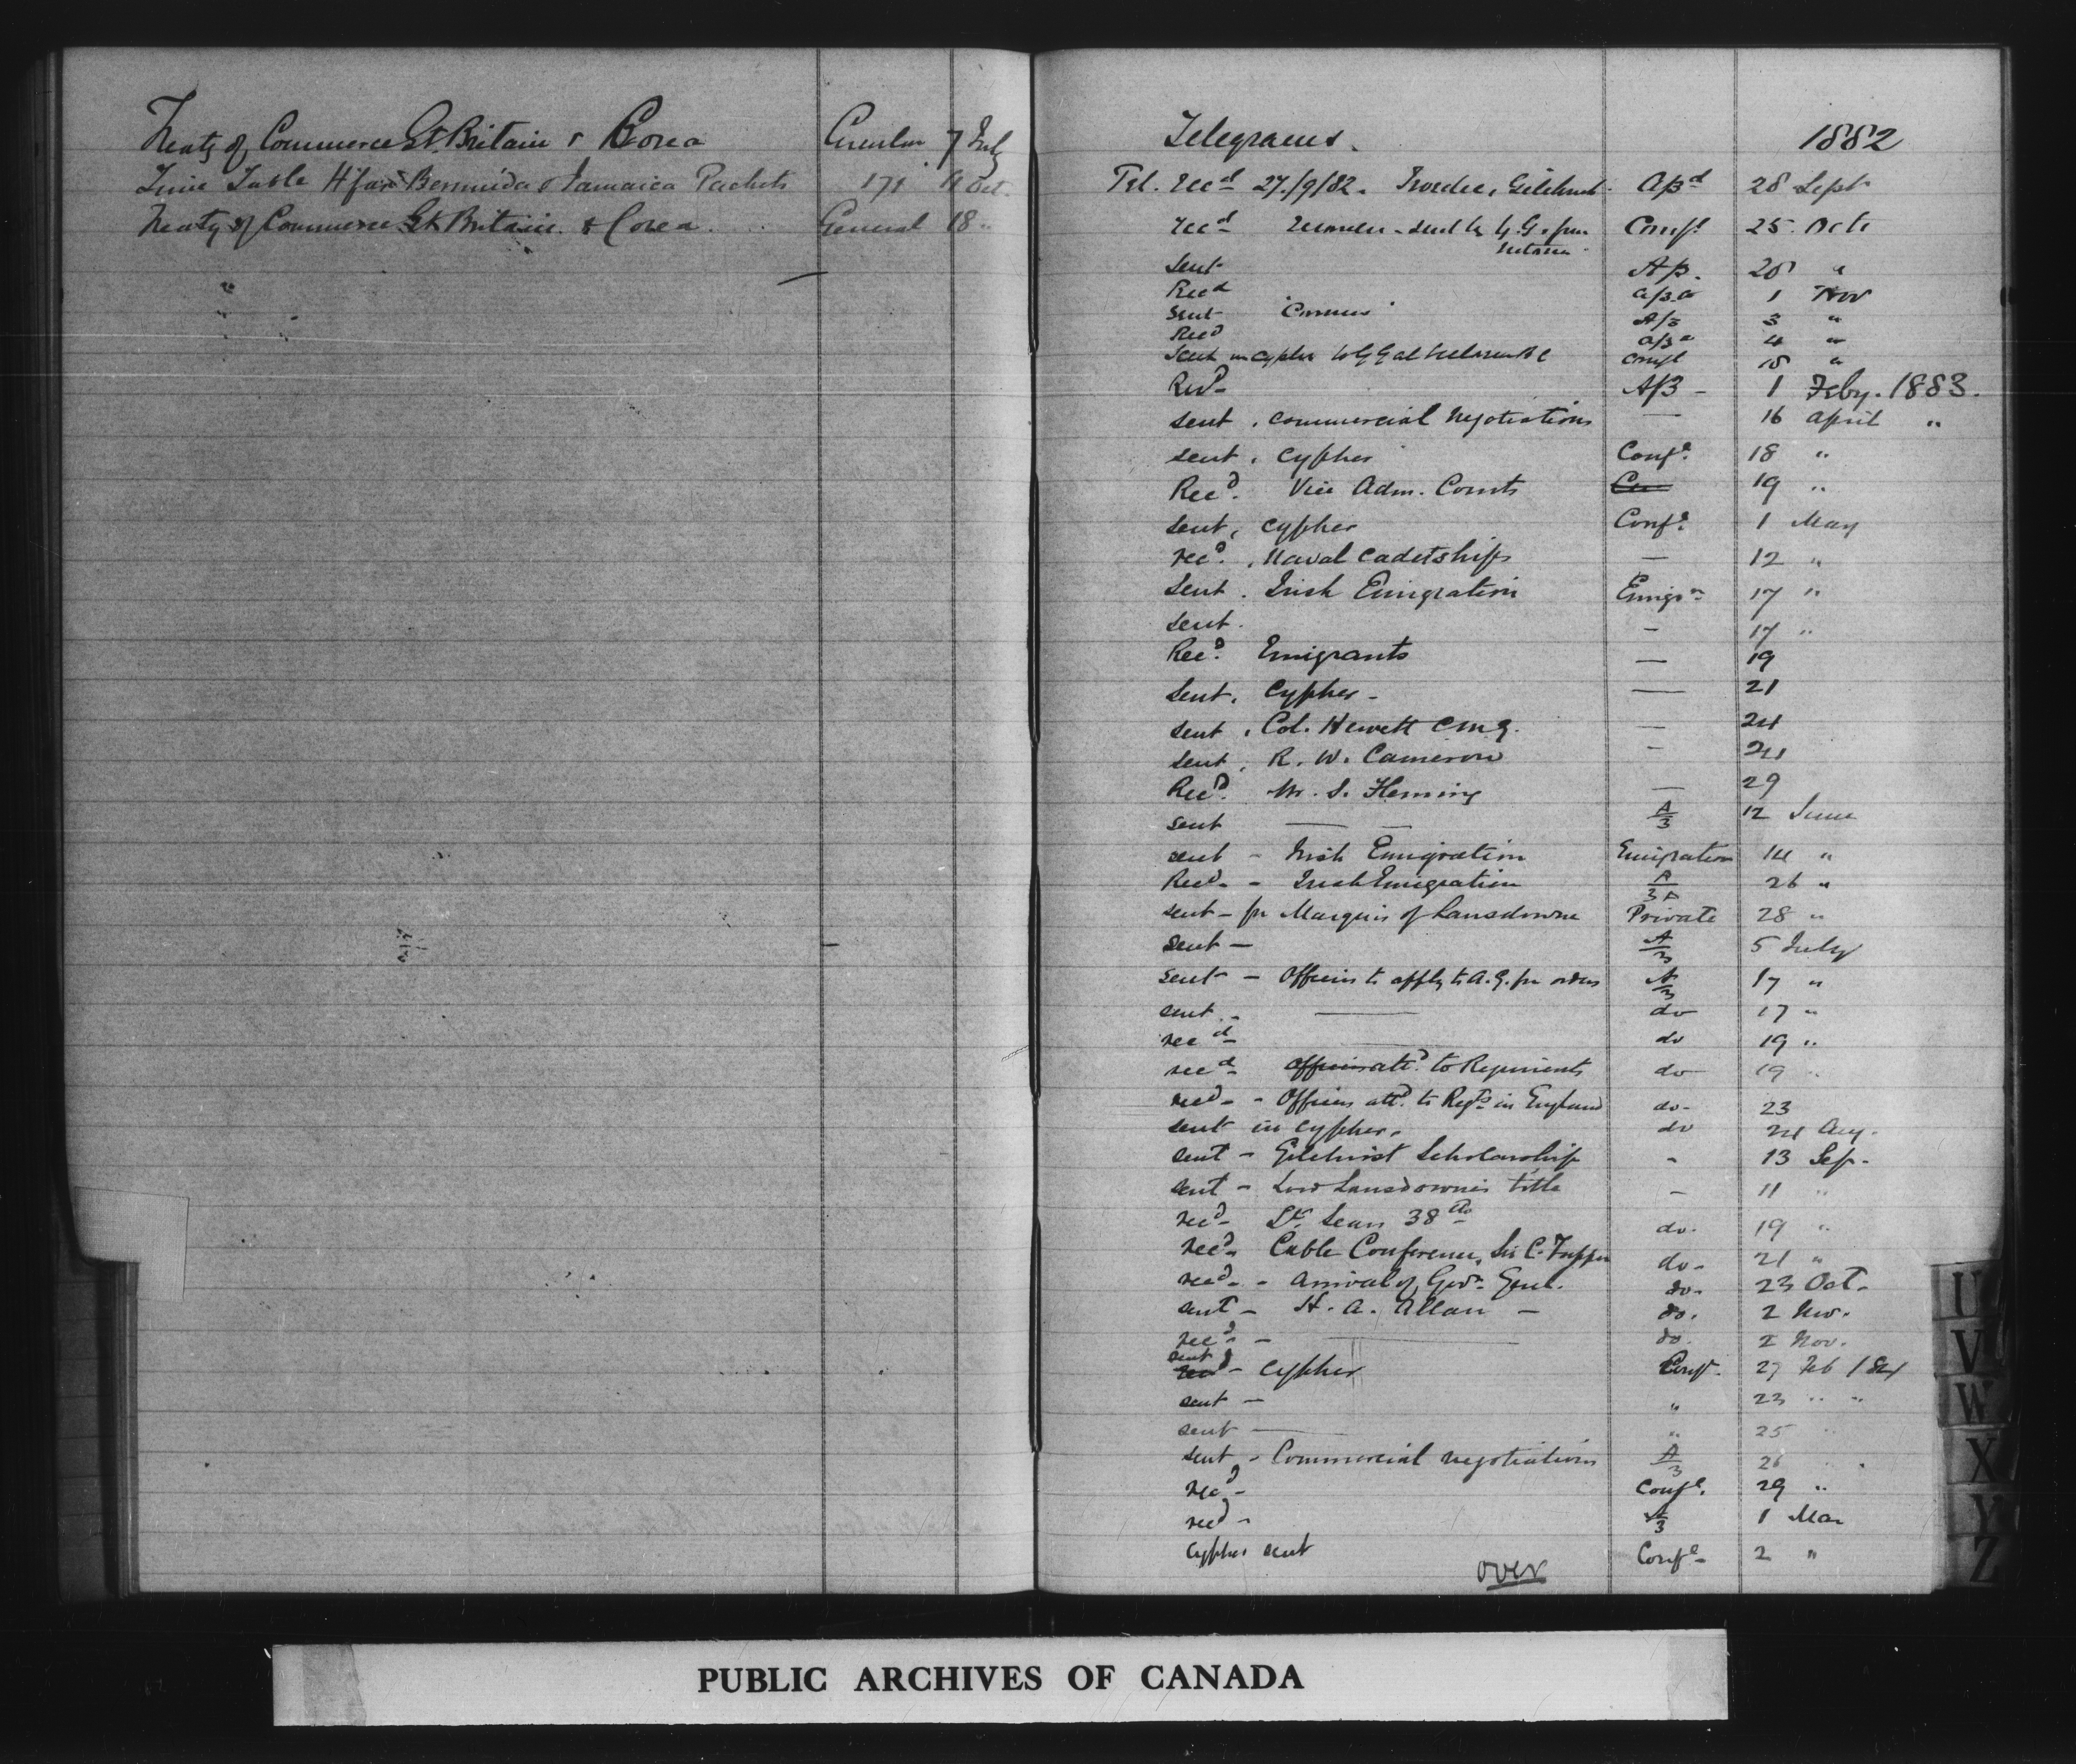 Treaty of Commerce Gt. Britain & Corea Circular 7 July
Time Table H'fax Bermuda & Jamaica Packets 171 Oct.
Treaty of Commerce Gt Britain & Corea. General 18 "
Telegrams. 1882
Tel. Recd 27/9/82. A/3d 28 Sept
recd sent to G.G. from Confl 25 Octr
sent A/3. 28 "
Recd a/3 a 1 Nov
sent A/3 3 "
Recd a/3 a 4 "
Sent in cypher to GG at confl 18 "
Recd A/3 - 1 Feby. 1883.
sent . commercial negotiations — 16 April "
sent . cypher Confl. 18 "
Recd. Vice Adm. Courts 19 "
sent, cypher Confl. 1 May
recd. . Naval Cadetships — 12 "
Sent . Irish Emigration Emigrn 17 "
sent. — 17 "
Recd. Emigrants — 19
Sent. Cypher - — 21
sent . Col. Hewett CMG. — 24
sent . R. W. Cameron - 24
Recd. Mr. S. Fleming — 29
sent — — A/3 12 June
sent - Irish Emigration Emigration 14 "
Recd. - Irish Emigration A/3A 26 "
sent - for Marquis of Lansdowne Private 28 "
sent — A/3 5 July
sent - Officers to apply to A.G. for orders A/3 17 "
sent - — do 17 "
recd — do 19 "
recd officers attd. to Regiments do 19 "
recd - Officers attd. to Regts in England do- 23
sent in cypher. do 24 Aug.
sent - Gilchrist Scholarship - 13 Sep.
sent - Lord Lansdowne's title - 11 "
recd- Lt. 38th do. 19 "
Recd. Cable Conference, Sir C. Tupper do- 21 "
recd. - Arrival of Govr. Genl. do- 23 Oct.
sent - H. A. Allan - do. 2 Nov.
recd. - — do. 2 Nov.
sent - cypher Confl. 27 Feb 1884
sent — " 23 " "
sent — " 25 "
sent - Commercial negotiations A/3 26 "
recd - Confl. 29 "
recd - A/3 1 Mar
Cypher sent Confl- 2 "
over
U
V
W
X
Y
Z
PUBLIC ARCHIVES OF CANADA